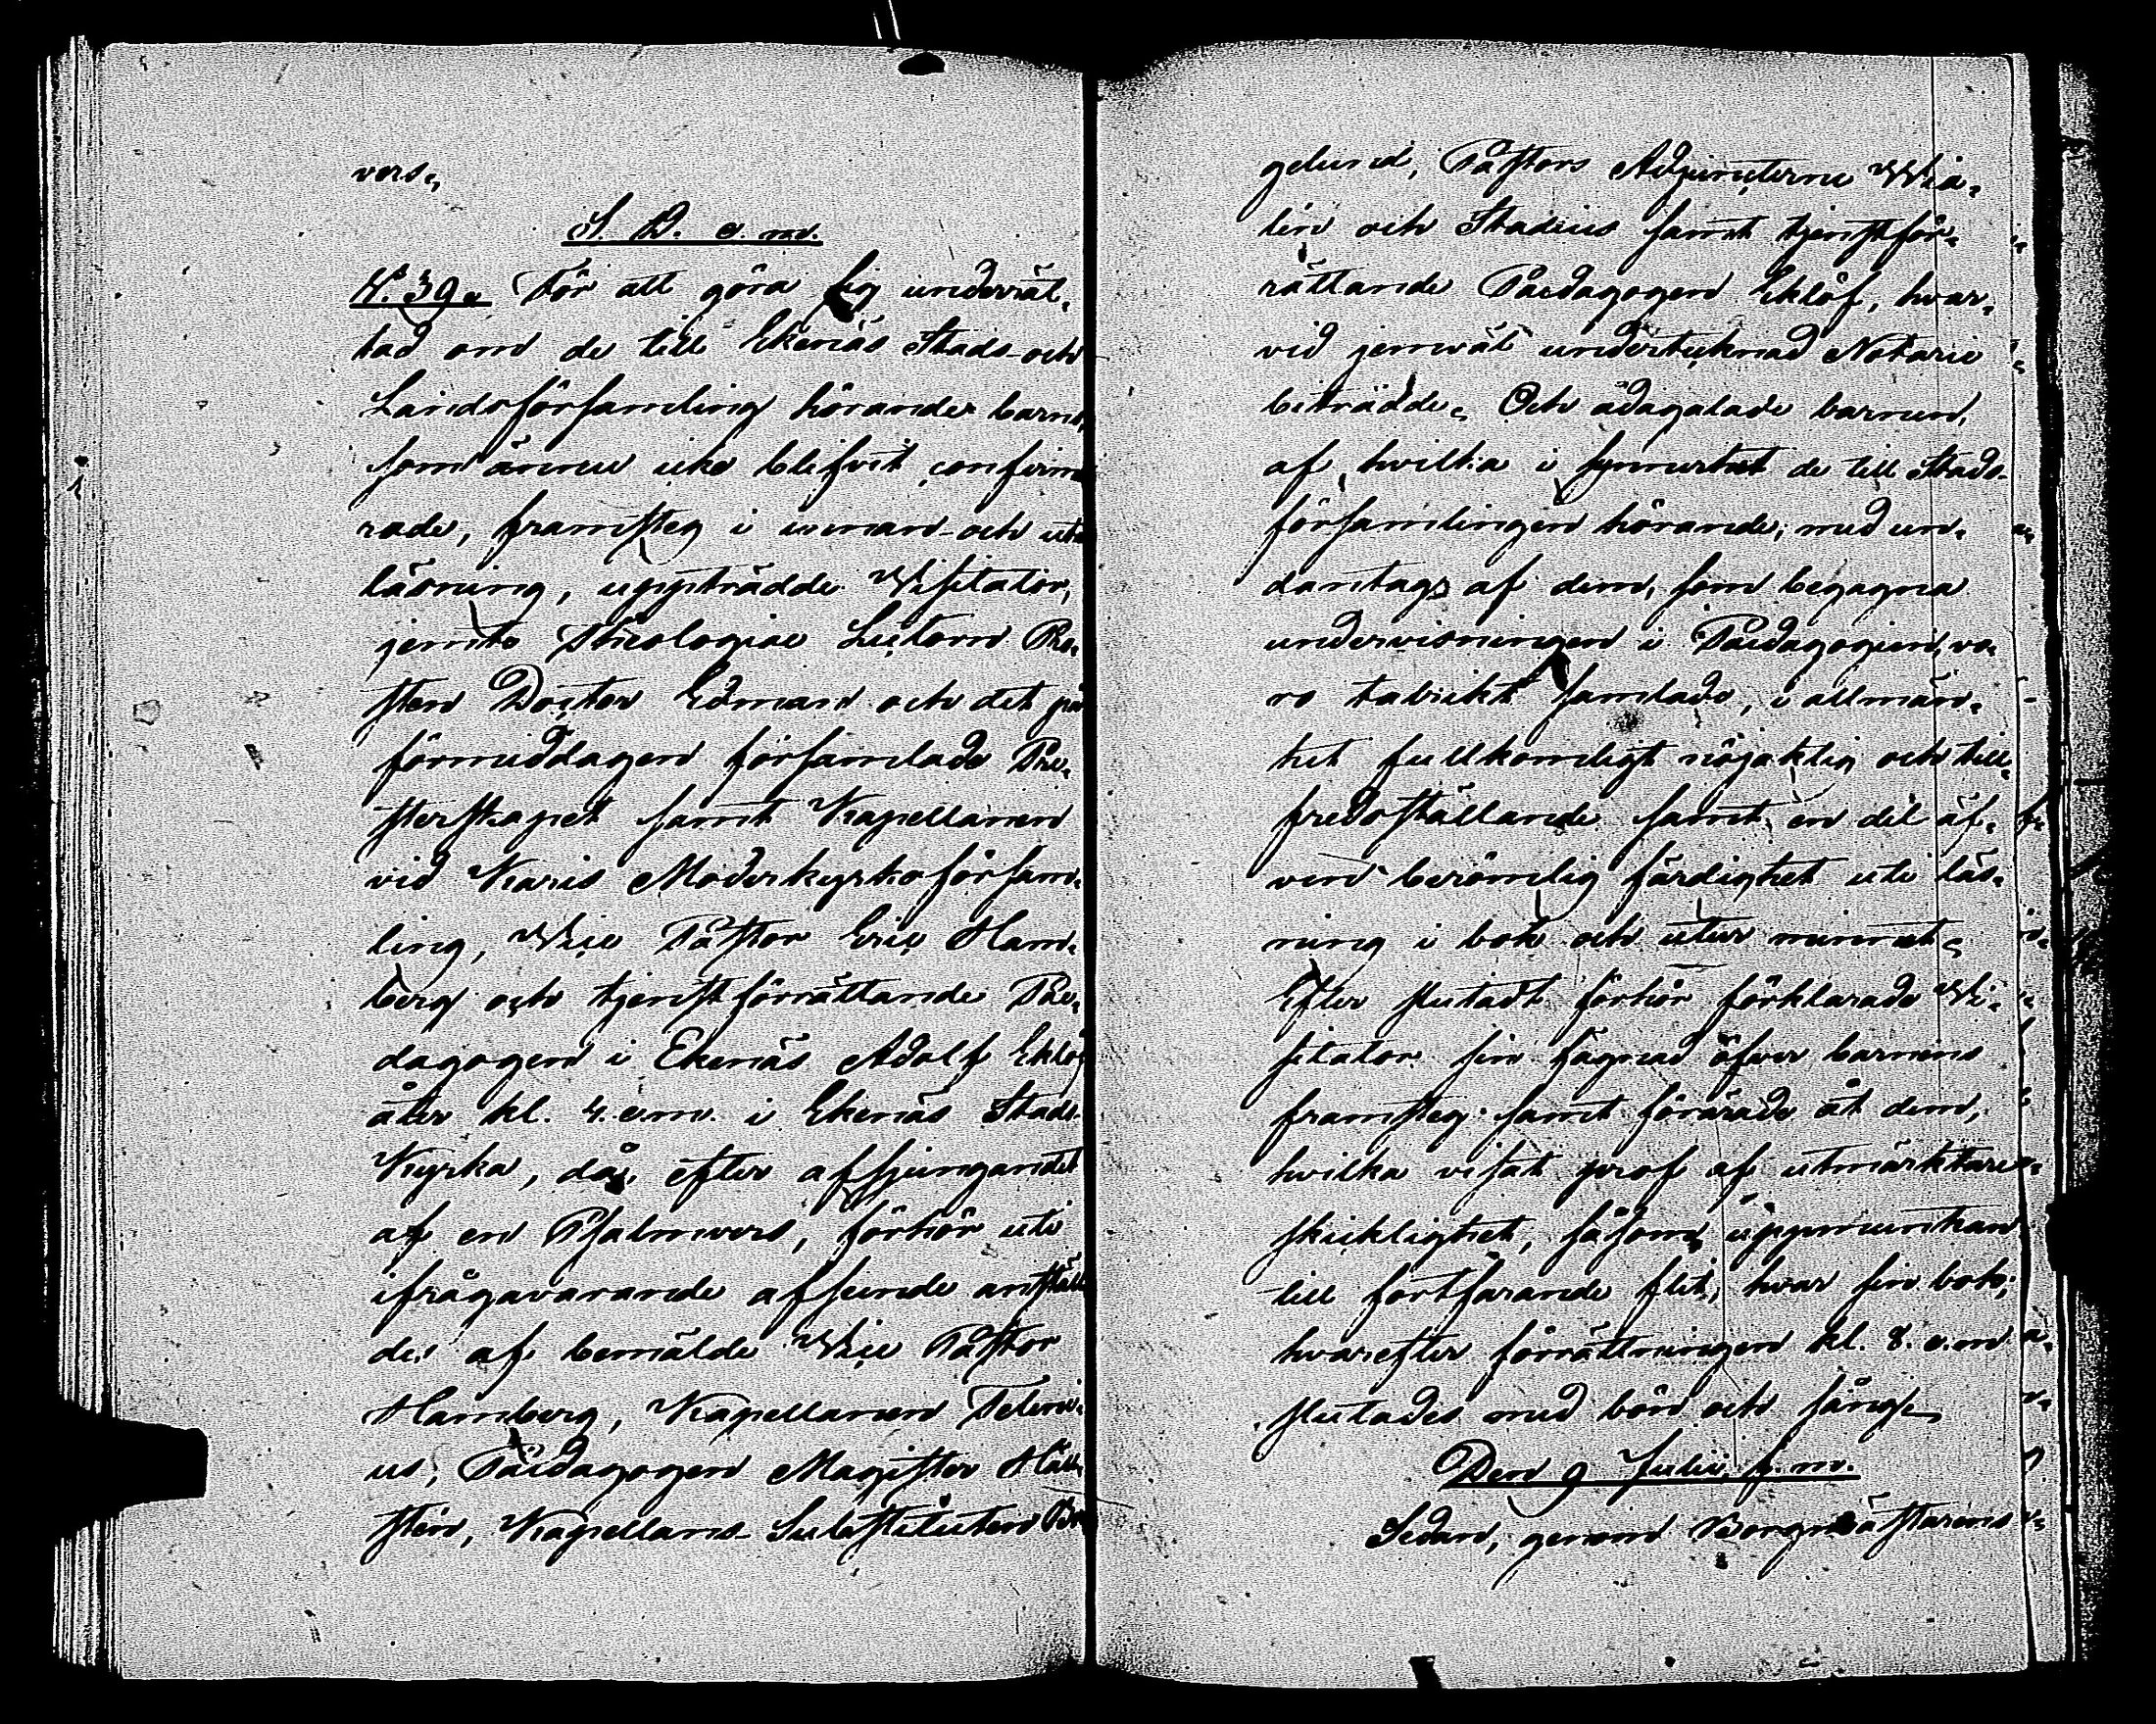 vers.
S. D. e. m.
N:o 39. För att göra sig underrät-
tad om de till Ekenäs Stads- och
Landsförsamling hörande barns,
som ännu icke blifvit confirme-
rade, framsteg i innan- och utan-
läsning, uppträdde Visitator,
jemte Theologiae Lectorn Pro-
sten Doctor Edman och det på
förmiddagen församlade Pre-
sterskapet samt Kapellanen
vid Karis Moderkyrkoförsam-
ling, Vice Pastor Eric Ham-
berg och tjenstförrättande Pæ-
dagogen i Ekenäs Adolf Eklöf
åter kl. 4. e.m. i Ekenäs Stads
Kyrka, då, efter afsjungandet
af en Psalmvers, förhör uti
ifrågavarande afseende anställ-
des af bemälde Vice Pastor
Hamberg, Kapellanen
us, Pædagogen Magister Häll-
stén, Kapellans-Substituten
gelund, Pastors Adjuncterne
lin och Stadius samt tjenstför-
rättande Pædagogen Eklöf, hvar-
vid jemväl undertecknad Notarie
biträdde. Och ådagalade barnen,
af hvilka i synnerhet de till Stads-
församlingen hörande, med un-
dantag af dem, som begagna
undervisningen i Pædagogien, vo-
ro talrikt samlade, i allmän-
het fullkomligt nöjaktig och till-
fredsställande samt en del äf-
ven berömlig färdighet uti läs-
ning i bok och utur minnet.
Efter slutadt förhör förklarade Vi-
sitator sin fägnad öfver barnens
framsteg samt förärade åt dem,
hvilka visat prof af utmärktare
skicklighet, såsom uppmuntran
till fortfarande flit, hvar sin bok;
hvarefter förrättningen kl. 8. e.m
slutades med bön och sång.
Den 9 Julii f. m.
Sedan, genom Borgmästarens